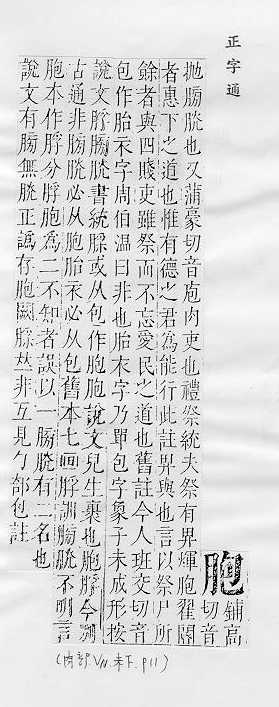 正字通
胞
鋪高
切音
拋膀胱也又蒲豪切音庖肉吏也禮祭統夫祭有畀煇胞翟閽
者惠下之道也惟有德之君為能行此註畀與也言以祭尸所
餘者與四賤吏雖祭而不忘愛民之道也舊註今人班交切音
包作胎衣字周伯温曰非也胎衣字乃單包字象子未成形按
說文脬膀胱書統或从包作胞胞說文兒生裹也胞脬今溷
古通非膀胱必从胞胎衣必从包舊本七畫脬訓膀胱不明言
胞本作脬分脬胞為二不知者誤以一膀胱有二名也
說文有膀無胱正譌存胞闕脬𠀤非互見勹部包註
(肉部 未下. P11)